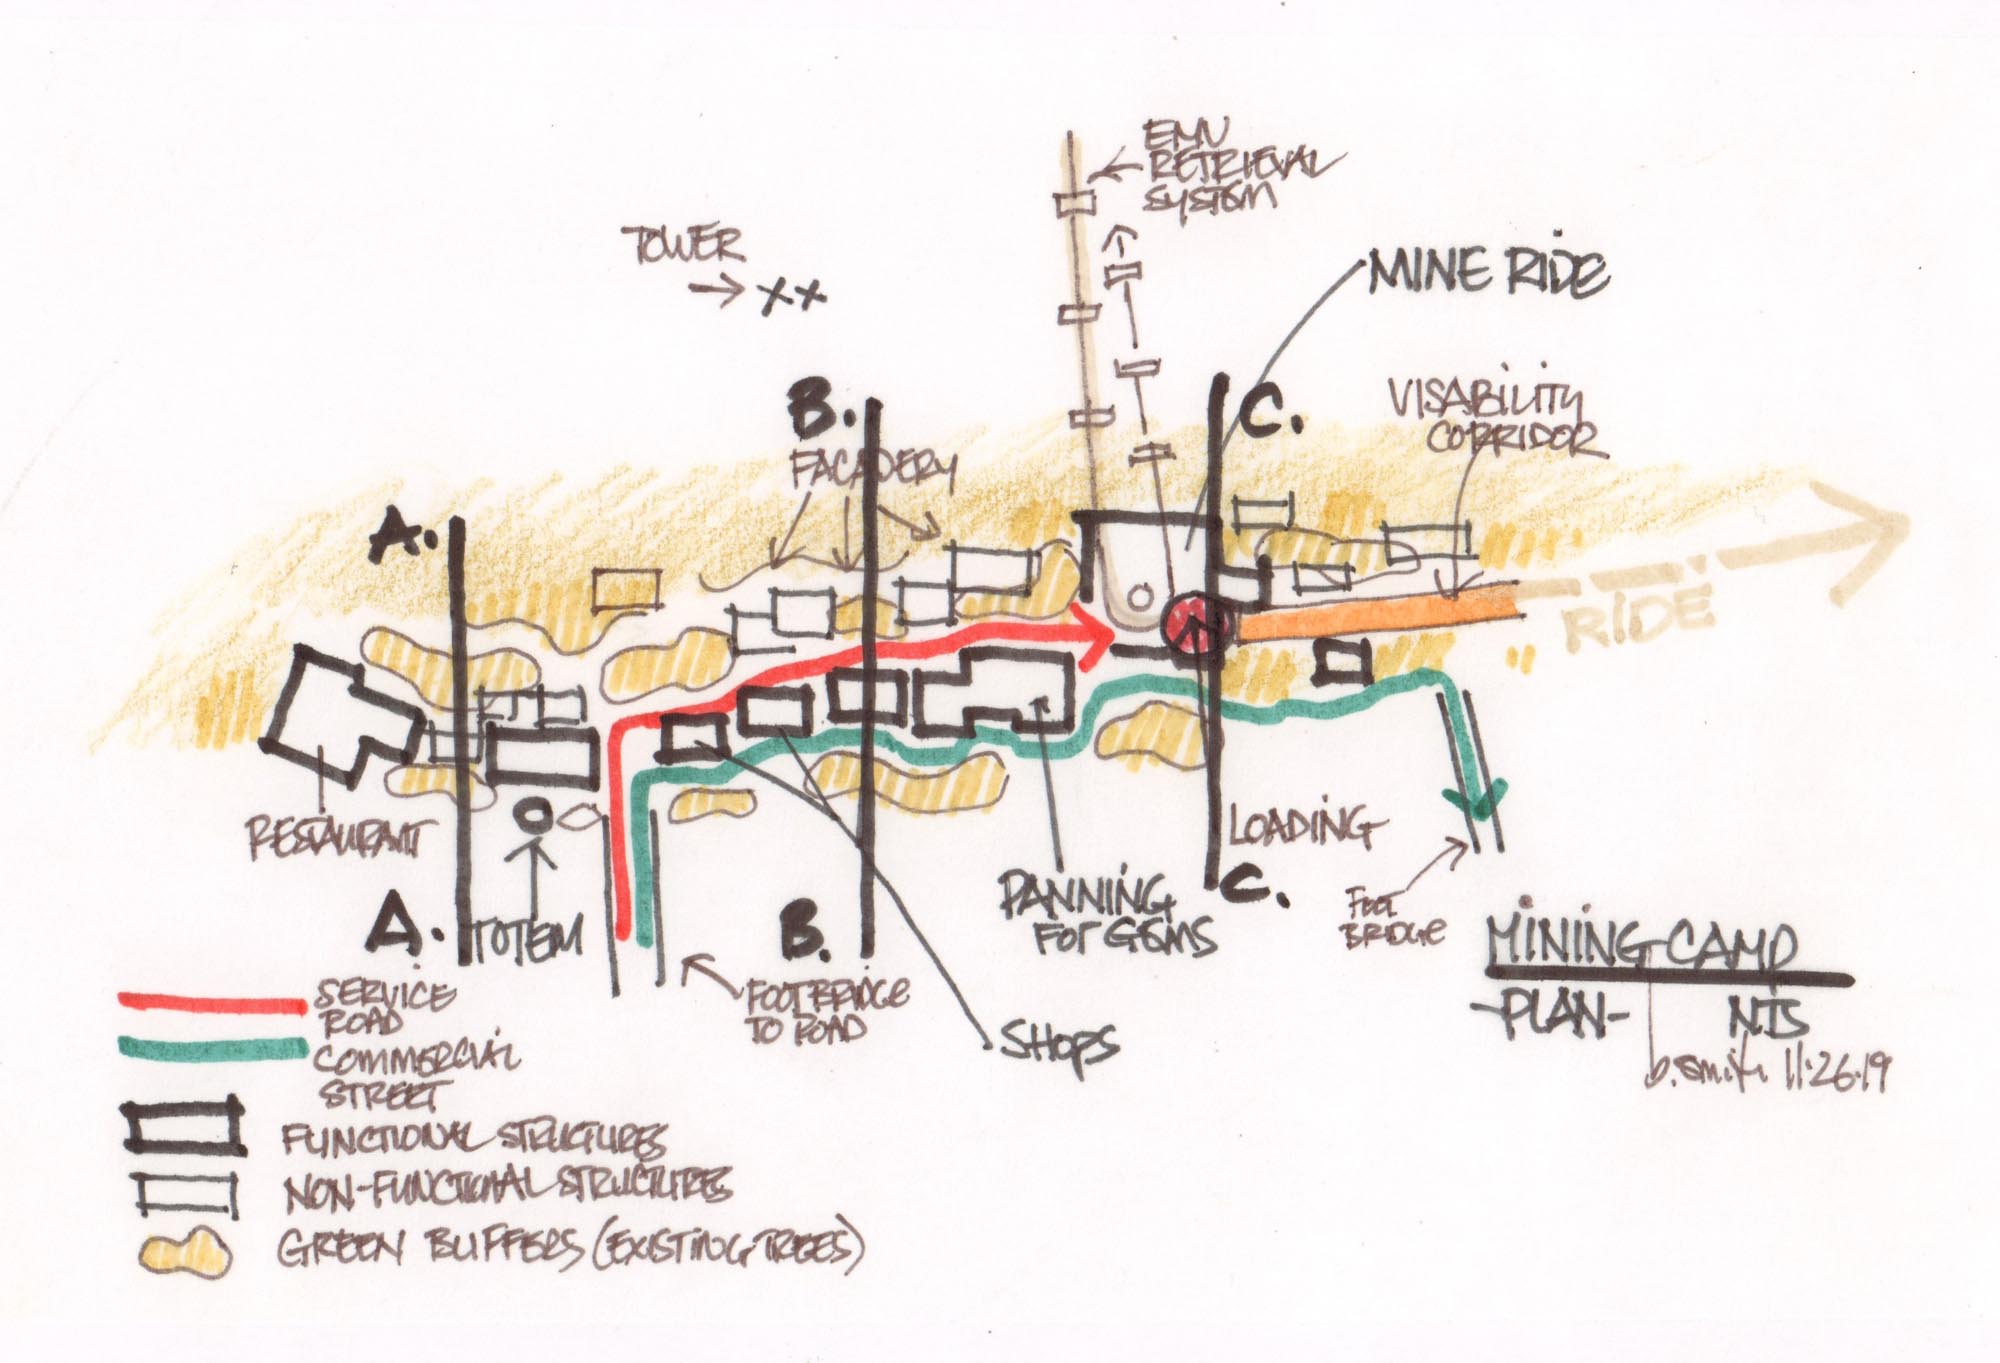 EMV
RETRIEVAL
SYSTEM
TOWER
XX
MINE RIDE
B.
C.
VISABILITY
CORRIDOR
FACADERY
A.
RIDE
RESTAURANT
LOADING
PANNING
FOR GEMS
C.
FOOT
BRIDGE
A.
TOTEM
B.
MINING CAMP
-PLAN- NTS
b. smith 11·26·19
FOOTBRIDGE
TO ROAD
SHOPS
SERVICE
ROAD
COMMERCIAL
STREET
FUNCTIONAL STRUCTURES
NON-FUNCTIONAL STRUCTURES
GREEN BUFFERS (EXISTING TREES)